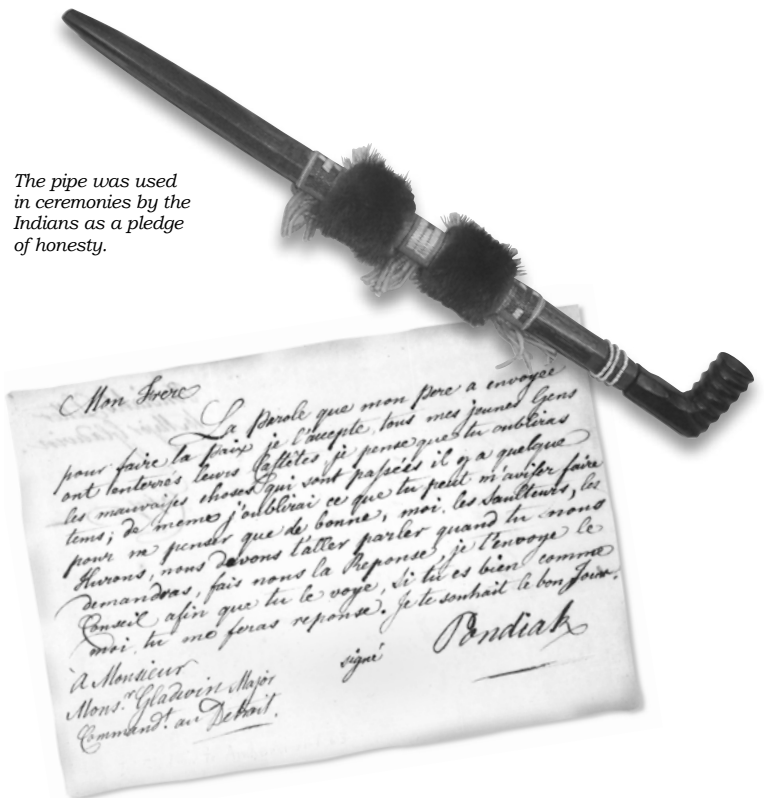 The pipe was used
in ceremonies by the
Indians as a pledge
of honesty.
Mon Frere
La Parole que mon Pere a envoyée
pour faire la Paix je l'accepte, tous mes jeunes Gens
ont enterrés leurs Castêtes je pense que tu oublieras
les mauvaises choses qui sont passées il y a quelque
tems; de meme j'oublirai ce que tu peut m'avoir faire
pour ne penser que de bonne, moi, les Saulteurs, les
Hurons, nous devons t'aller parler quand tu nous
demandras, fais nous la Reponse, je t'envoye le
Conseil afin que tu le voye, Si tu es bien comme
moi tu me feras reponse. Je te souhait le bon Jour.
signé Pondiak
à Monsieur
Mons.r Gladwin Major
Command.t au Detroit.